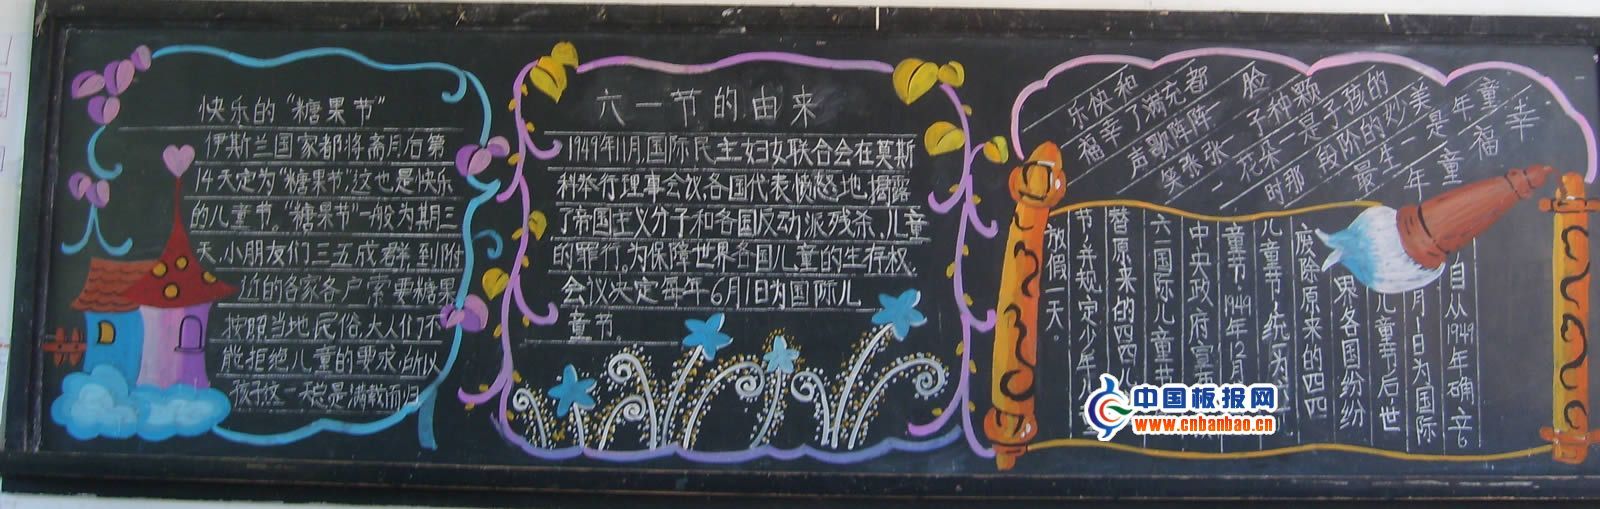 快乐的“糖果节”
伊斯兰国家都将斋月后第
14天定为“糖果节”,这也是快乐
的儿童节。“糖果节”一般为期三
天,小朋友们三五成群,到附
近的各家各户索要糖果
按照当地民俗,大人们不
能拒绝儿童的要求,所以
孩子这一天总是满载而归
六一节的由来
1949年11月,国际民主妇女联合会在莫斯
科举行理事会议,各国代表愤怒地揭露
了帝国主义分子和各国反动派残杀、儿童
的罪行。为保障世界各国儿童的生存权,
会议决定每年6月1日为国际儿
童节。
幸福童年
童年是一生最
美妙的阶段那时
的孩子是一朵花一
颗种子一张张笑
脸一阵阵歌声
都充满了幸福
和快乐
自从1949年确立6
月1日为国际
儿童节后,世
界各国纷纷
废除原来的四四
儿童节,统为
童节。1949年12月
中央政府宣
六一国际儿童节
替原来的四四儿
节,并规定少年儿
放假一天。
中国板报网
www.cnbanbao.cn